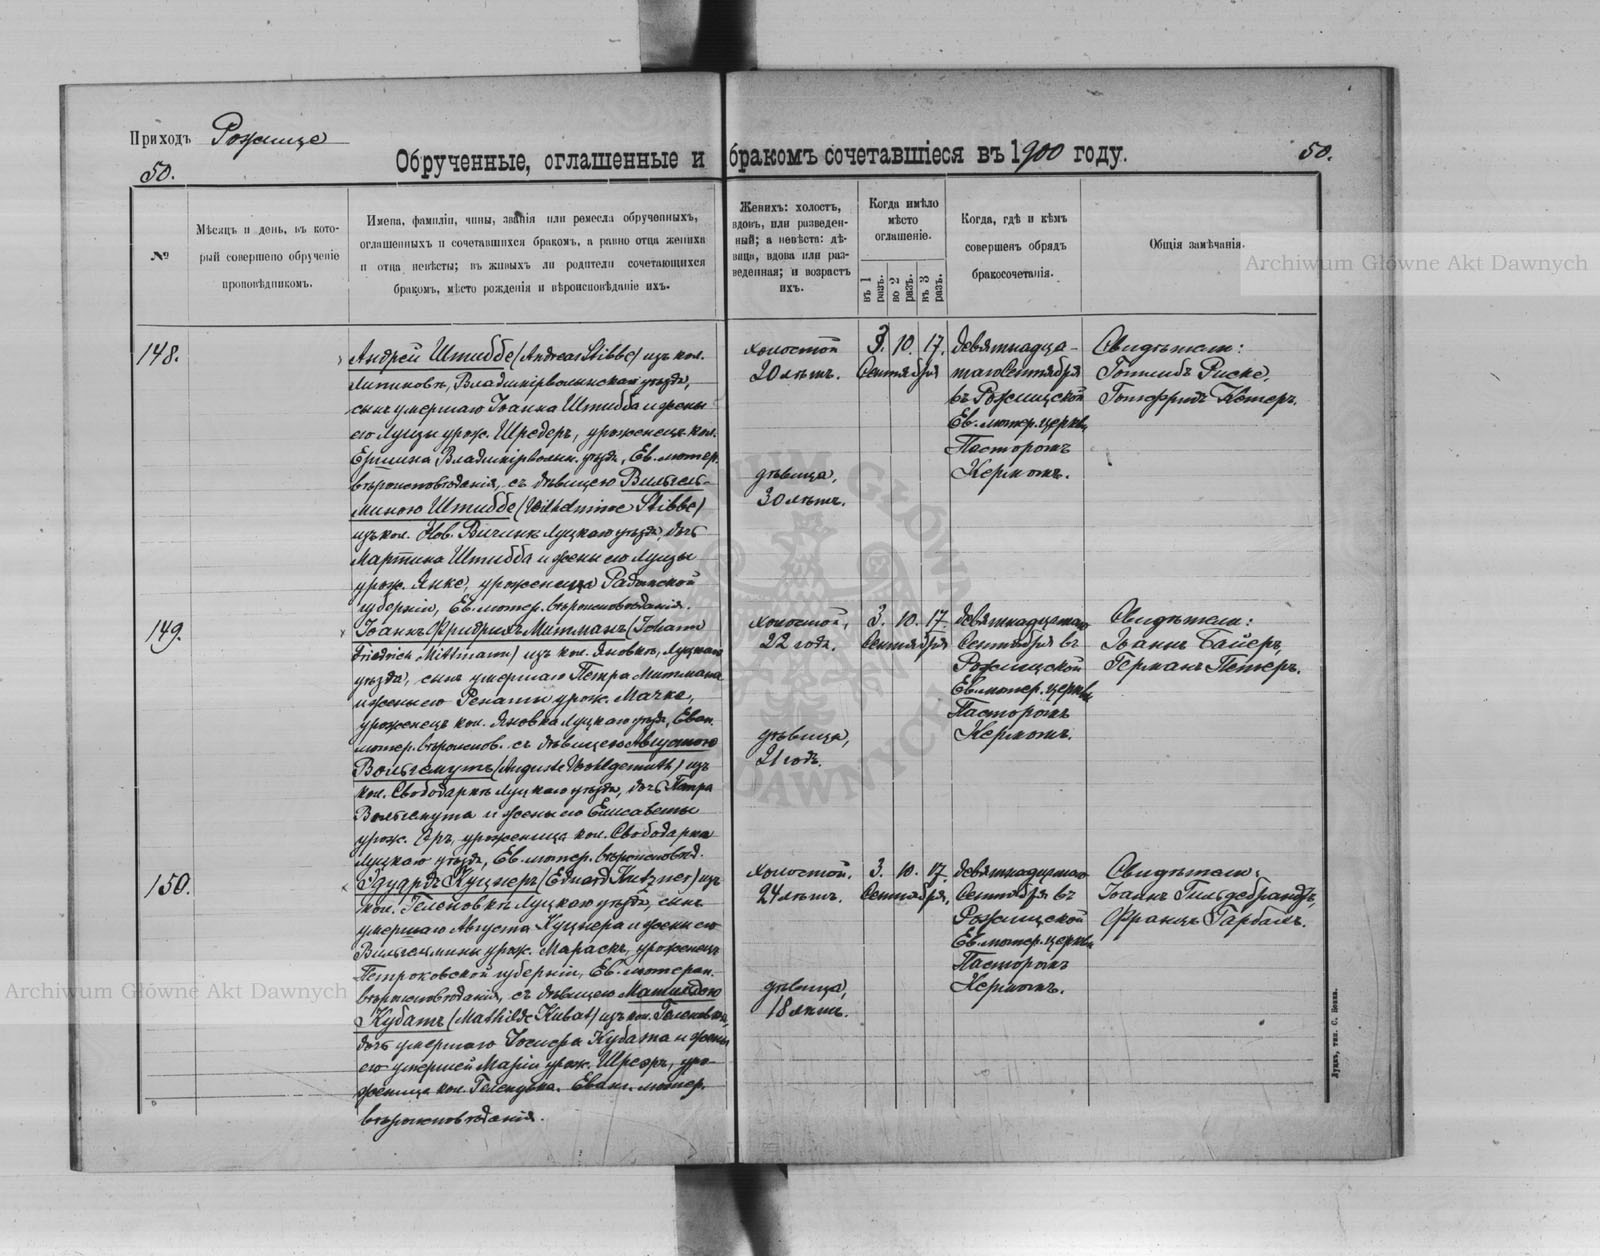 Приходъ Рожище
50.
Обрученные, оглашенные и бракомъ сочетавшіеся въ 1900 году.
50.
№
Мѣсяцъ и день, въ кото-
рый совершено обрученіе
проповѣдникомъ.
Имена, фамиліи, чины, званія или ремесла обрученныхъ,
оглашенныхъ и сочетавшихся бракомъ, а равно отца жениха
и отца невѣсты; въ живыхъ ли родители сочетающихся
бракомъ, мѣсто рожденія и вѣроисповѣданіе ихъ.
Женихъ: холостъ,
вдовъ, или разведен-
ный; а невѣста: дѣ-
вица, вдова или раз-
веденная; и возрастъ
ихъ.
Когда имѣло
мѣсто
оглашеніе.
въ 1 разъ.
во 2 разъ.
въ 3 разъ.
Когда, гдѣ и кѣмъ
совершенъ обрядъ
бракосочетанія.
Общія замѣчанія.
Archiwum Główne Akt Dawnych
148.
Андрей Штиббе (Andreas Stibbe) изъ кол.
Липиновъ, Владимірволынскаго уѣзда,
сынъ умершаго Іоанна Штибба и жены
его Луизы урож. Шредеръ, уроженецъ кол.
Владимірволын. уѣзда, Ев. лютер.
вѣроисповѣданія, съ дѣвицею Вильгель-
миною Штиббе (Wilhelmine Stibbe)
изъ кол. Нов. Луцкаго уѣзда, дочь
Мартина Штибба и жены его Луизы
урож. Янке, уроженица Радомской
губерніи, Ев. лютер. вѣроисповѣданія.
холостой
20 лѣтъ.
дѣвица,
30 лѣтъ.
3. 10. 17.
Сентября
девятнадца-
таго Сентября
въ Рожищской
Ев. лютер. церкви
Пасторомъ
Керномъ.
Свидѣтели:
Готлибъ Риске,
Готфридъ
149.
Іоаннъ Фридрихъ Митманъ (Johann
Friedrich Mittmann) изъ кол. Яновки, Луцкаго
уѣзда, сынъ умершаго Петра Митмана
и жены его Ренаты урож. Мачке,
уроженецъ кол. Яновка Луцкаго уѣзда, Еван.
лютер. вѣроиспов. съ дѣвицею Августою
Вольгемутъ (Auguste Wohlgemuth) изъ
кол. Свободарки Луцкаго уѣзда, дочь Петра
Вольгемута и жены его Елисаветы
урож. уроженица кол. Свободарка
Луцкаго уѣзда, Ев. лютер. вѣроисповѣд.
холостой,
22 года.
дѣвица,
21 годъ.
3. 10. 17.
Сентября
девятнадцатаго
Сентября въ
Рожищской
Ев. лютер. церкви
Пасторомъ
Керномъ.
Свидѣтели:
Іоаннъ Байеръ,
Германъ Петеръ.
150.
Эдуардъ Куцнеръ (Eduard Kutzner) изъ
кол. Геленовки Луцкаго уѣзда, сынъ
умершаго Августа Куцнера и жены его
Вильгельмины урож. Мараскъ, уроженецъ
Петроковской губерніи, Ев. лютеран.
вѣроисповѣданія, съ дѣвицею Матильдою
Кубатъ (Mathilde Kubat) изъ кол. Геленовки,
дочь умершаго Іосифа Кубата и жены
его умершей Маріи урож. уро-
женица кол. Геленувка. Еванг. лютер.
вѣроисповѣданія.
холостой.
24 лѣтъ.
дѣвица,
18 лѣтъ.
3. 10. 17.
Сентября,
девятнадцатаго
Сентября въ
Рожищской
Ев. лютер. церкви
Пасторомъ
Керномъ.
Свидѣтели:
Іоаннъ Гильдебрандтъ,
Францъ Гарбамъ.
Archiwum Główne Akt Dawnych
Луцкъ, тип. С. Бокка.